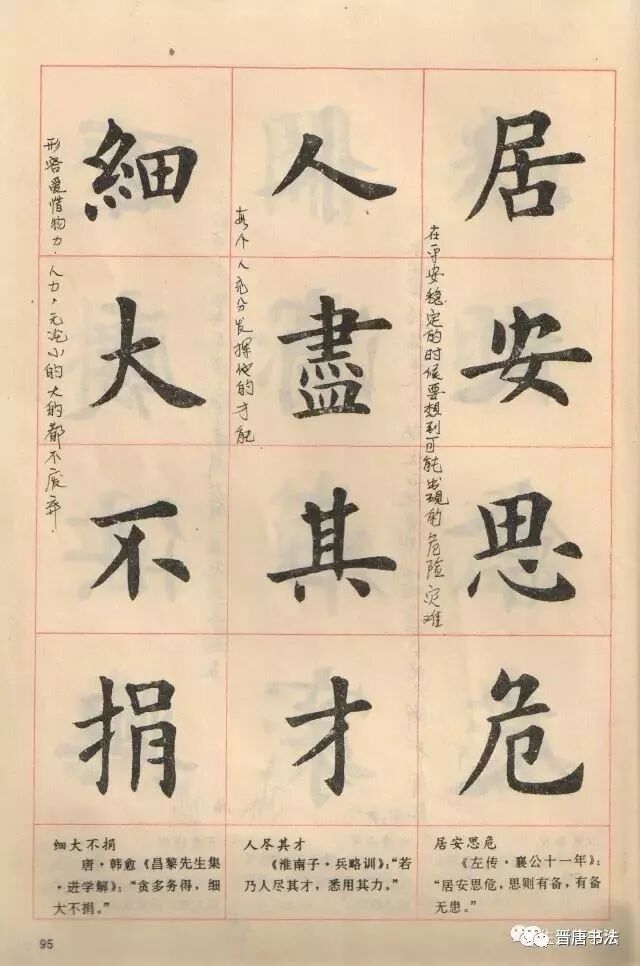 居安思危
在平安稳定的时候要想到可能出现的危险灾难
人盡其才
每个人充分发挥他的才能
細大不捐
形容爱惜物力、人力,无论小的大的都不废弃.
居安思危
《左传·襄公十一年》:
“居安思危,思则有备,有备
无患。”
人尽其才
《淮南子·兵略训》:“若
乃人尽其才,悉用其力。”
细大不捐
唐·韩愈《昌黎先生集
·进学解》:“贪多务得,细
大不捐。”
95
晋唐书法